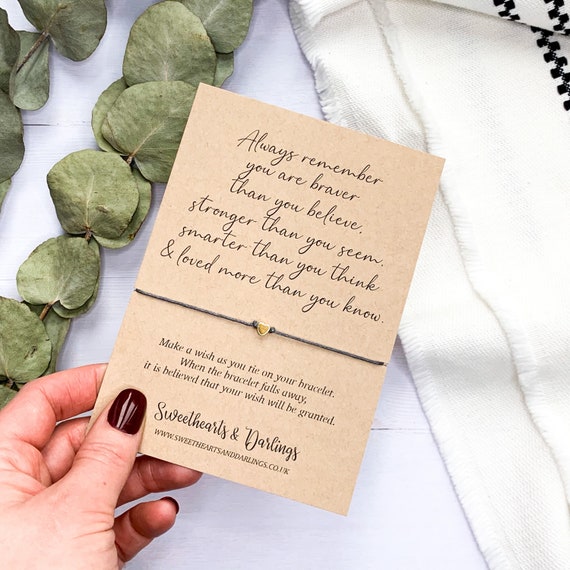 Always remember
you are braver
than you believe,
stronger than you seem,
smarter than you think
& loved more than you know.
Make a wish as you tie on your bracelet.
When the bracelet falls away,
it is believed that your wish will be granted.
Sweethearts & Darlings
WWW.SWEETHEARTSANDDARLINGS.CO.UK